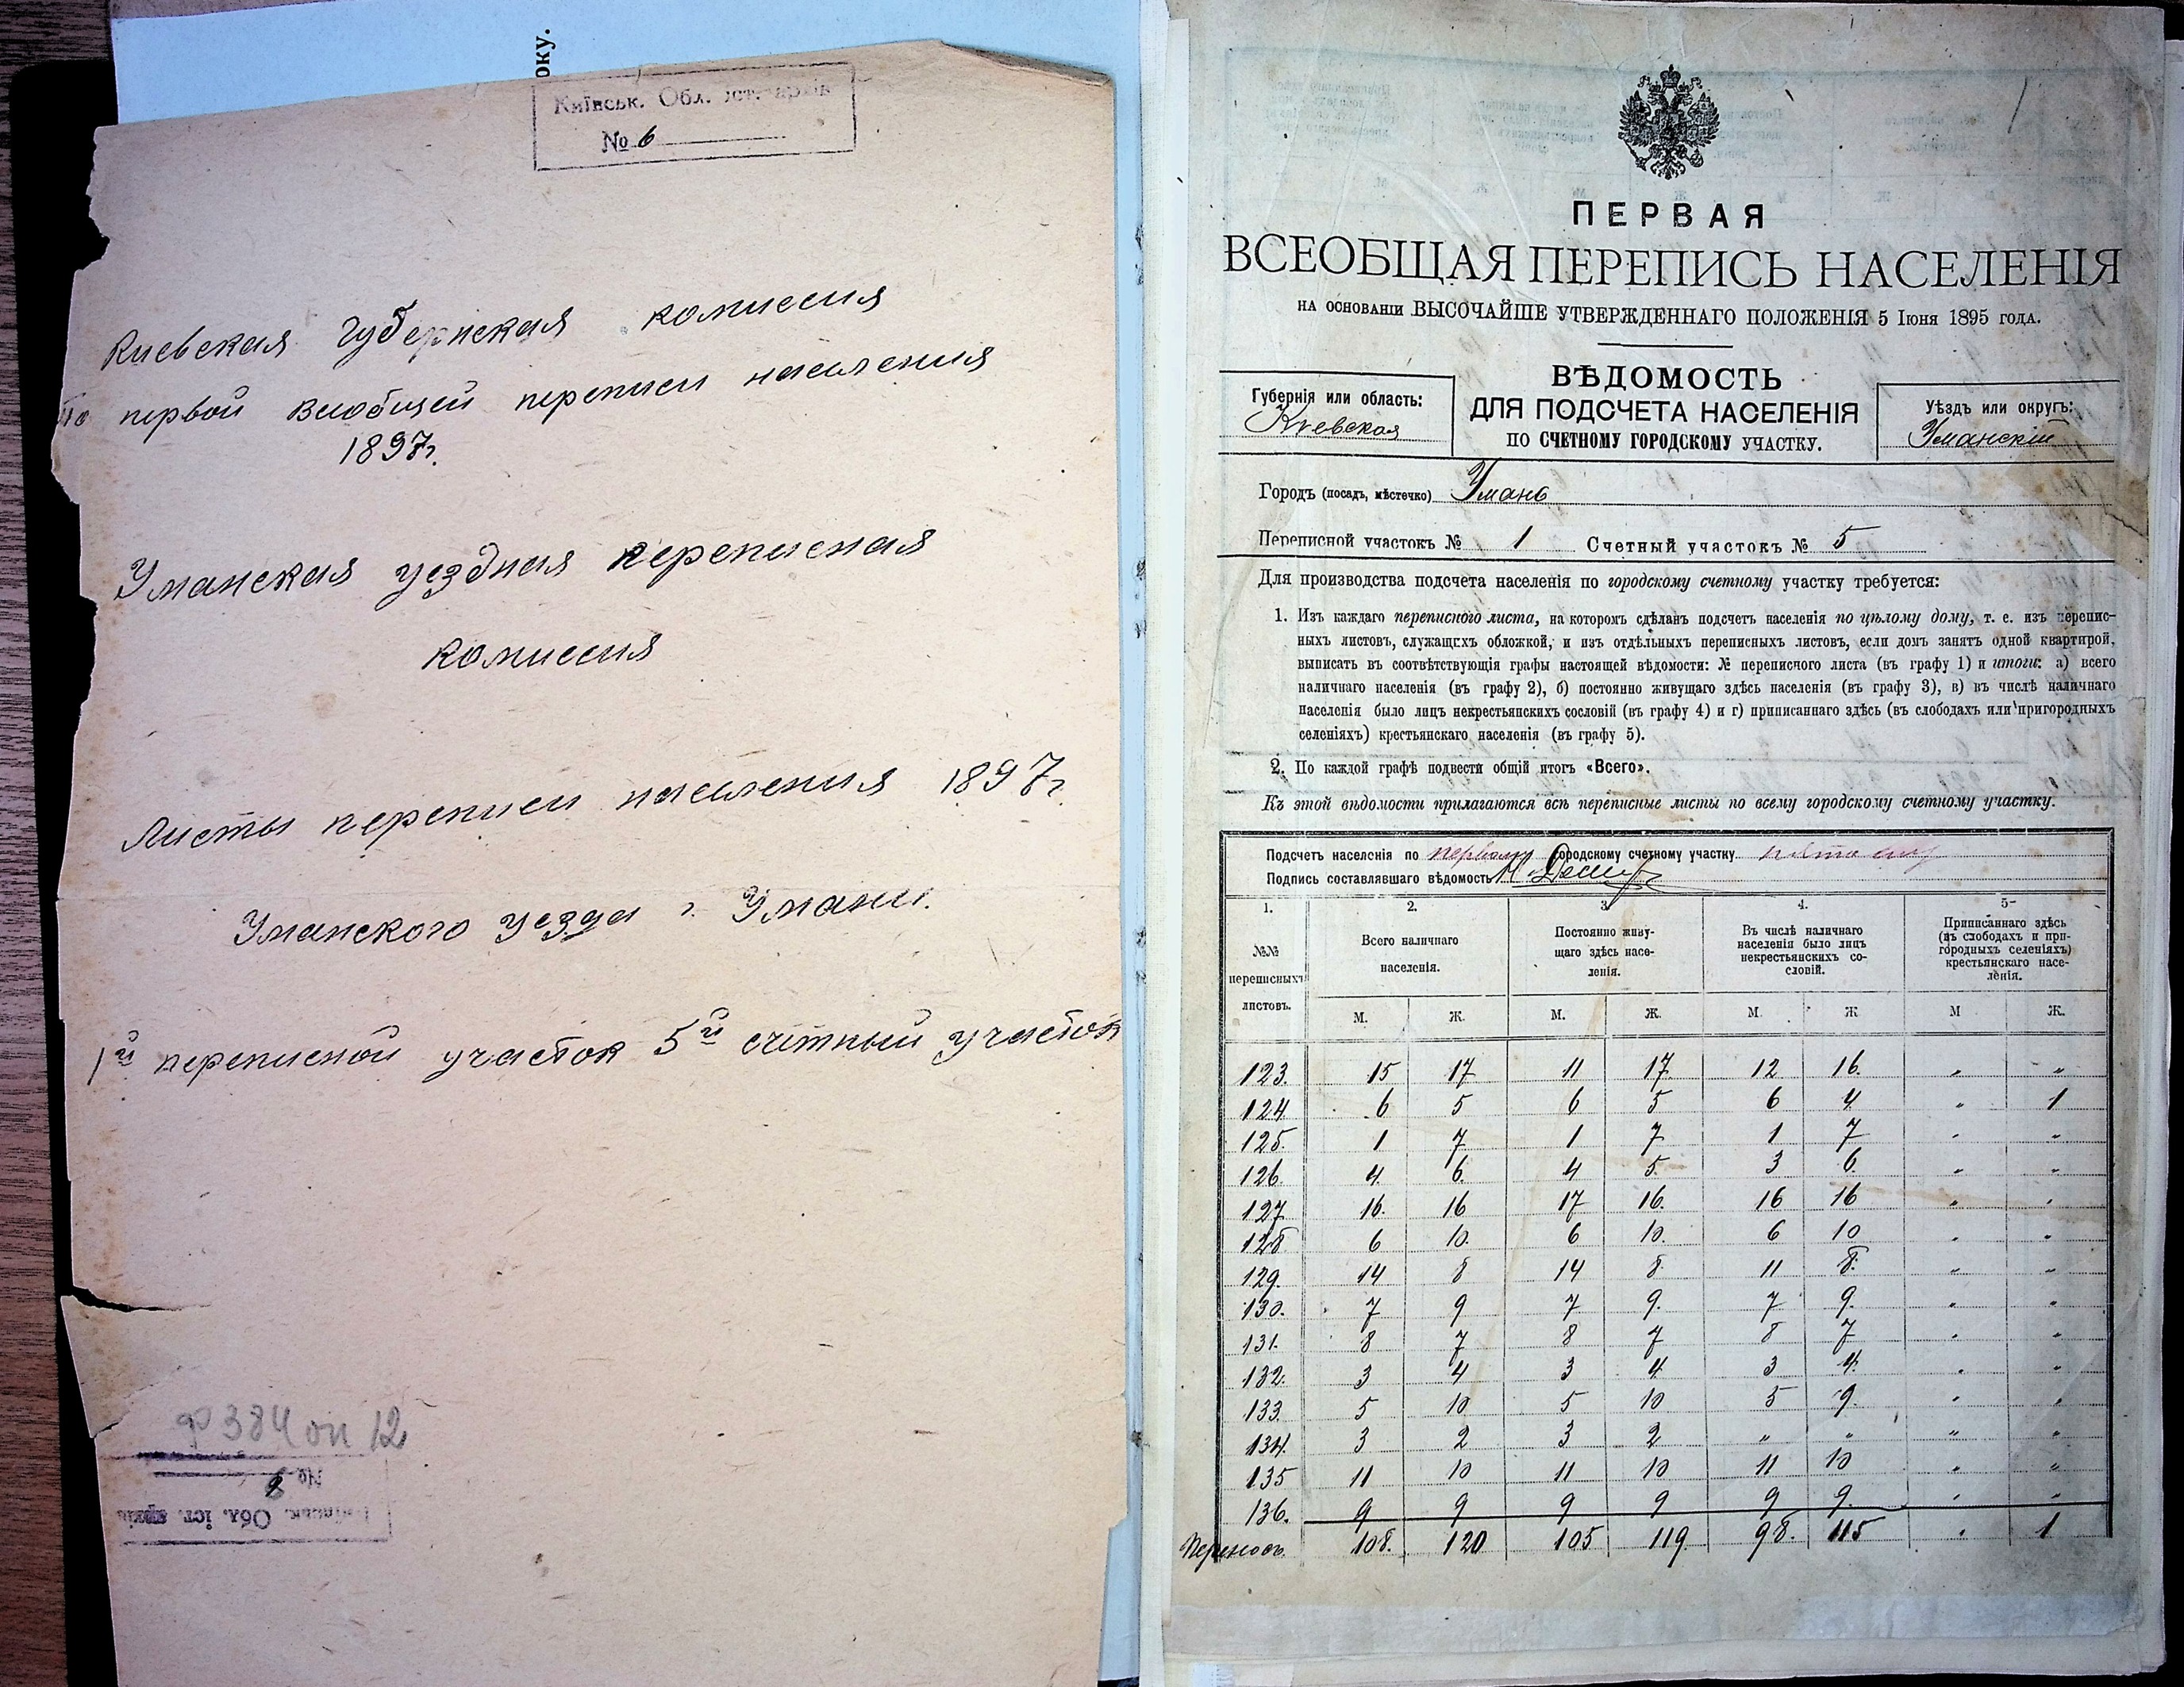 оку.
Київськ. Обл. іст. архів
№ 6
Киевская Губернская комиссия
по первой Всеобщей переписи населения
1897г.
Уманская уездная переписная
комиссия
Листы переписи населения 1897г.
Уманского уезда г. Умани.
1й переписной участок 5й счетный участок
ф 384 оп 12
№
Київськ. Обл. іст. архів
ПЕРВАЯ
ВСЕОБЩАЯ ПЕРЕПИСЬ НАСЕЛЕНІЯ
НА ОСНОВАНІИ ВЫСОЧАЙШЕ УТВЕРЖДЕННАГО ПОЛОЖЕНІЯ 5 Іюня 1895 ГОДА.
ВѢДОМОСТЬ
ДЛЯ ПОДСЧЕТА НАСЕЛЕНІЯ
ПО СЧЕТНОМУ ГОРОДСКОМУ УЧАСТКУ.
Губернія или область:
Кіевская
Уѣздъ или округъ:
Уманскій
Городъ (посадъ, мѣстечко) Умань
Переписной участокъ № 1 Счетный участокъ № 5
Для производства подсчета населенія по городскому счетному участку требуется:
1. Изъ каждаго переписного листа, на которомъ сдѣланъ подсчетъ населенія по цѣлому дому, т. е. изъ перепис-
ныхъ листовъ, служащихъ обложкой, и изъ отдѣльныхъ переписныхъ листовъ, если домъ занятъ одной квартирой,
выписать въ соотвѣтствующія графы настоящей вѣдомости: № переписного листа (въ графу 1) и итоги: а) всего
наличнаго населенія (въ графу 2), б) постоянно живущаго здѣсь населенія (въ графу 3), в) въ числѣ наличнаго
населенія было лицъ некрестьянскихъ сословій (въ графу 4) и г) приписаннаго здѣсь (въ слободахъ или пригородныхъ
селеніяхъ) крестьянскаго населенія (въ графу 5).
2. По каждой графѣ подвести общій итогъ «Всего».
Къ этой вѣдомости прилагаются всѣ переписные листы по всему городскому счетному участку.
Подсчетъ населенія по первому городскому счетному участку пятому
Подпись составлявшаго вѣдомость
1. 2. 3. 4. 5.
№№ переписныхъ листовъ. Всего наличнаго населенія. Постоянно живу-щаго здѣсь насе-ленія. Въ числѣ наличнаго населенія было лицъ некрестьянскихъ со-словій. Приписаннаго здѣсь (въ слободахъ и при-городныхъ селеніяхъ) крестьянскаго насе-ленія.
М. Ж. М. Ж. М Ж М Ж.
123. 15 17 11 17 12 16. „ „
124 6 5 6 5 6 4 „ 1
125. 1 7 1 7 1 7 „ „
126. 4 6. 4 5 3 6 „ „
127 16. 16 17 16. 16 16 „ „
128 6 10. 6 10. 6 10 „ „
129. 14 8 14 8 11 8. „ „
130. 7 9 7 9. 7 9. „ „
131. 8 7 8 7 8 7 „ „
132. 3 4 3 4 3 4 „ „
133. 5 10 5 10 5 9. „ „
134. 3 2 3 2 „ „ „ „
135 11 10 11 10 11 10 „ „
136. 9 9 9 9 9 9. „ „
Переносъ. 108. 120 105 119 98. 115 „ 1